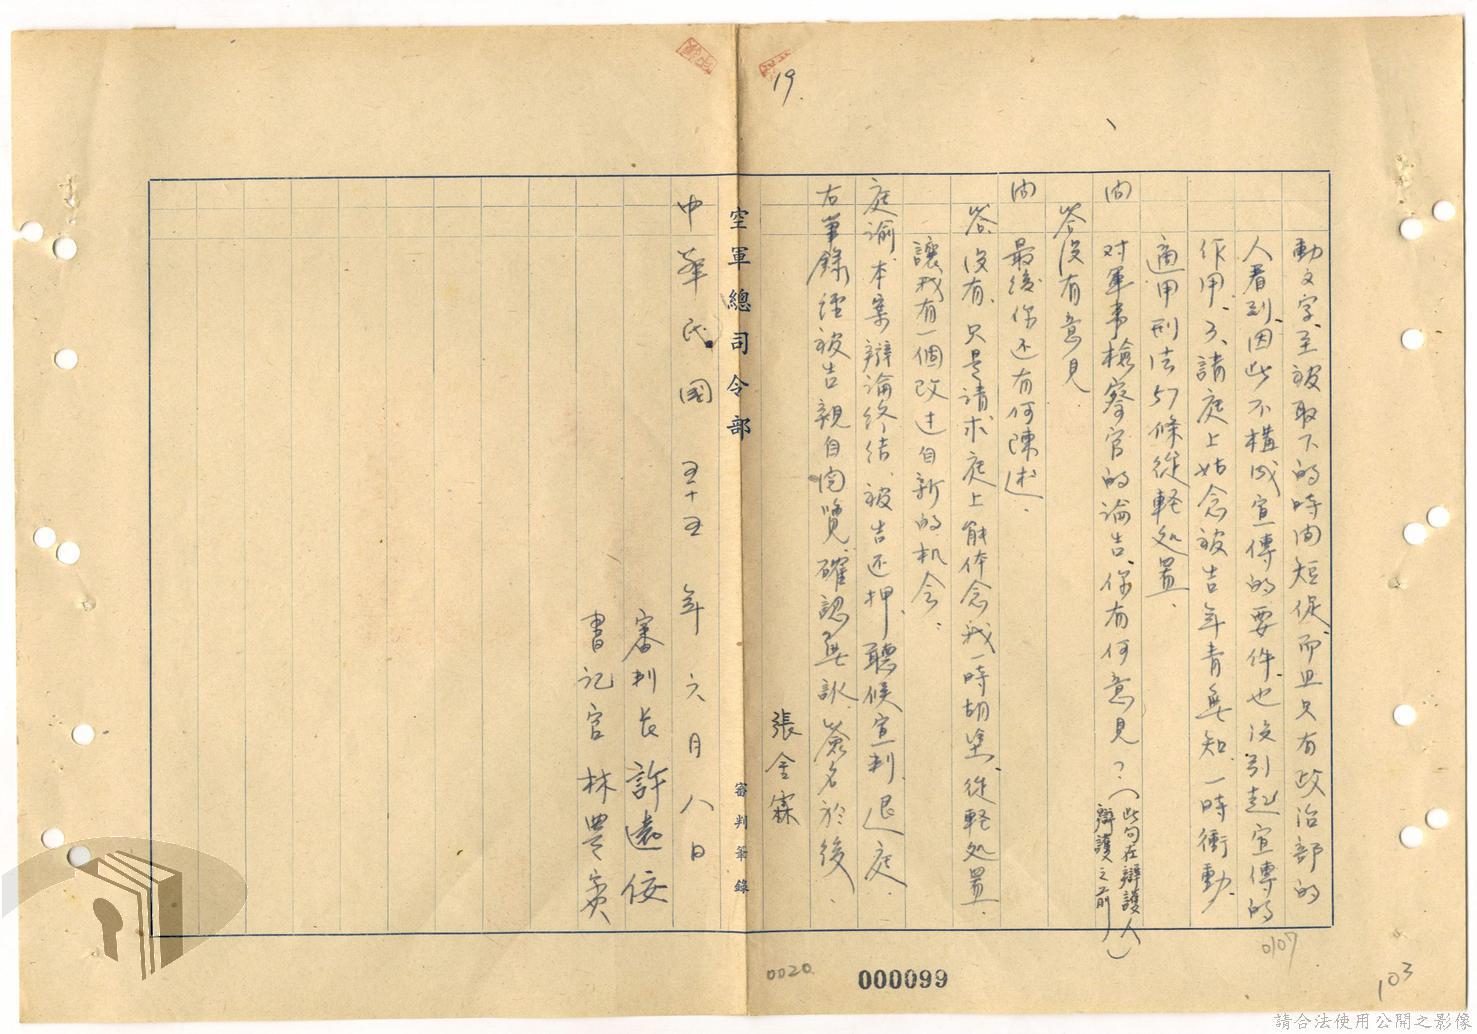 19
動文字、至被取下的時间短促、而且只有政治部的
人看到、因此不構成宣傳的要件、也沒引起宣傳的
作用、3、請庭上姑念被告年青無知、一時衝動、
適用刑法57條從軽処置、
问 对軍事檢察官的論告、你有何意見？（此句在辯護人
辯護之前）
答 没有意見
问 最後你还有何陳述、
答 没有、只是請求庭上能体念我一時胡塗、從軽処置、
讓我有一個改过自新的机会、
庭諭、本案辯論终结、被告还押、聽候宣判、退庭、
右筆錄經被告親自閱覽、確認無訛、簽名於後、
張金霖
空軍總司令部
審判筆錄
中華民國 五十五 年 六 月 八 日
審判长 許遠
書记官 林豊
0107
103
0020
000099
請合法使用公開之影像